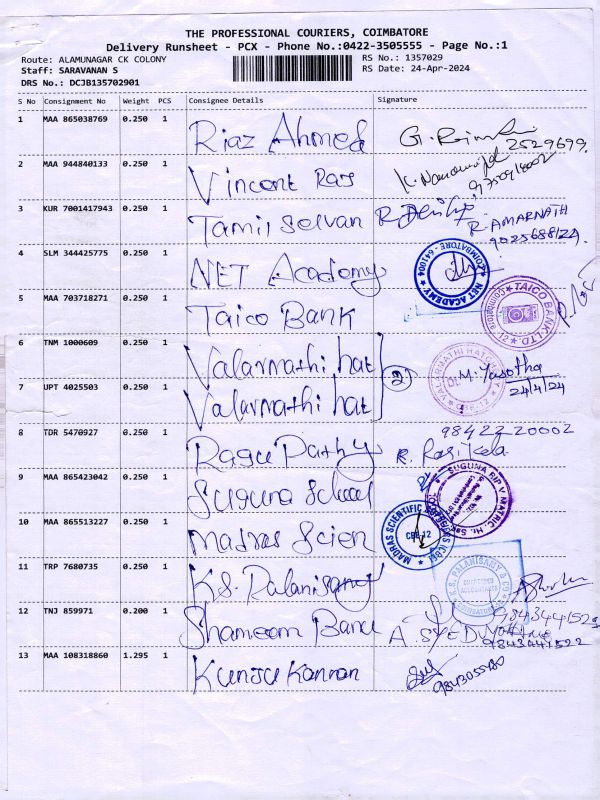 THE PROFESSIONAL COURIERS, COIMBATORE
Delivery Runsheet - PCX - Phone No.:0422-3505555 - Page No.:1
Route: ALAMUNAGAR CK COLONY
Staff: SARAVANAN S
DRS No.: DCJB135702901
RS No.: 1357029
RS Date: 24-Apr-2024
S No Consignment No Weight PCS Consignee Details Signature
1 MAA 865038769 0.250 1 Riaz Ahmed
2529699.
2 MAA 944840133 0.250 1 Vincent Raj
3 KUR 7001417943 0.250 1 Tamil Selvan
R. AMARNATH
9025688124
4 SLM 344425775 0.250 1 NET Academy
NET ACADEMY COIMBATORE - 641004
5 MAA 703718271 0.250 1 Taico Bank
TAICO BANK LTD.
6 TNM 1000609 0.250 1 Valarmathi hat
7 UPT 4025503 0.250 1 Valarmathi hat
2
M. Yasotha
24/4/24
8 TDR 5470927 0.250 1 Ragu Pathy
98422 20002
R. Rasikala
9 MAA 865423042 0.250 1 Suguna School
10 MAA 865513227 0.250 1 Madras Scien
MADRAS SCIENTIFIC
CBE-12
11 TRP 7680735 0.250 1 K.S. Palanisamy
K.S. PALANISAMY & CO
CHARTERED
ACCOUNTANTS
COIMBATORE
12 TNJ 859971 0.200 1 Shameem Banu
A SYED
9843441522
13 MAA 108318860 1.295 1 Kunju Kannan